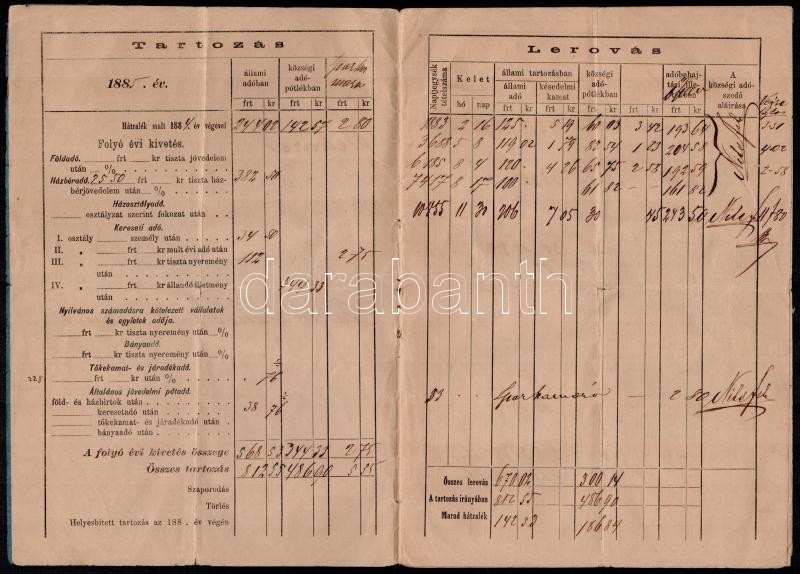 Tartozás
1885. év.
állami adóban
községi adópótlékban
frt kr frt kr frt kr
Hátralék mult 1884. év végével 244 02 142 57 2 80
Folyó évi kivetés.
Földadó. frt kr tiszta jövedelem
után %
Házbéradó. 2550 frt kr tiszta ház-
bérjövedelem után % 382 50
Házosztályadó.
osztályzat szerint fokozat után
Kereseti adó.
I. osztály személy után 34 50
II. " frt kr mult évi adó után
III. " frt kr tiszta nyeremény 112 2 75
után
IV. " frt kr állandó illetmény 344 33
után
Nyilvános számadásra kötelezett vállalatok
és egyletek adója.
frt kr tiszta nyeremény után %
Bányaadó.
frt kr tiszta nyeremény után %
Tőkekamat- és járadékadó.
frt kr után % 76
Általános jövedelmi pótadó.
föld- és házbirtok után 38 76
keresetadó után
tőkekamat- és járadékadó után
bányaadó után
A folyó évi kivetés összege 568 53 344 33 2 75
Összes tartozás 812 55 486 90 5 55
Szaporodás
Törlés
Helyesbített tartozás az 188 . év végén
Lerovás
Naptjegyzék tételszáma
Kelet
hó nap
állami tartozásban
állami adó
késedelmi kamat
községi adópótlékban
adóbehajtási illeték
A községi adószedő aláirása
frt kr frt kr frt kr frt kr frt kr
1883 2 16 125 5 19 60 03 3 42 193 64 3 51
3688 5 8 119 02 1 79 82 54 1 23 204 58 4 02
6185 8 4 120 4 26 65 75 2 58 192 59 2 58
7417 8 17 100 61 82 161 82
10455 11 30 206 7 05 30 45 243 50
83 2 80
Összes lerovás 670 02 300 14
A tartozás irányában 812 55 486 90
Marad hátralék 142 53 186 84
darabanth